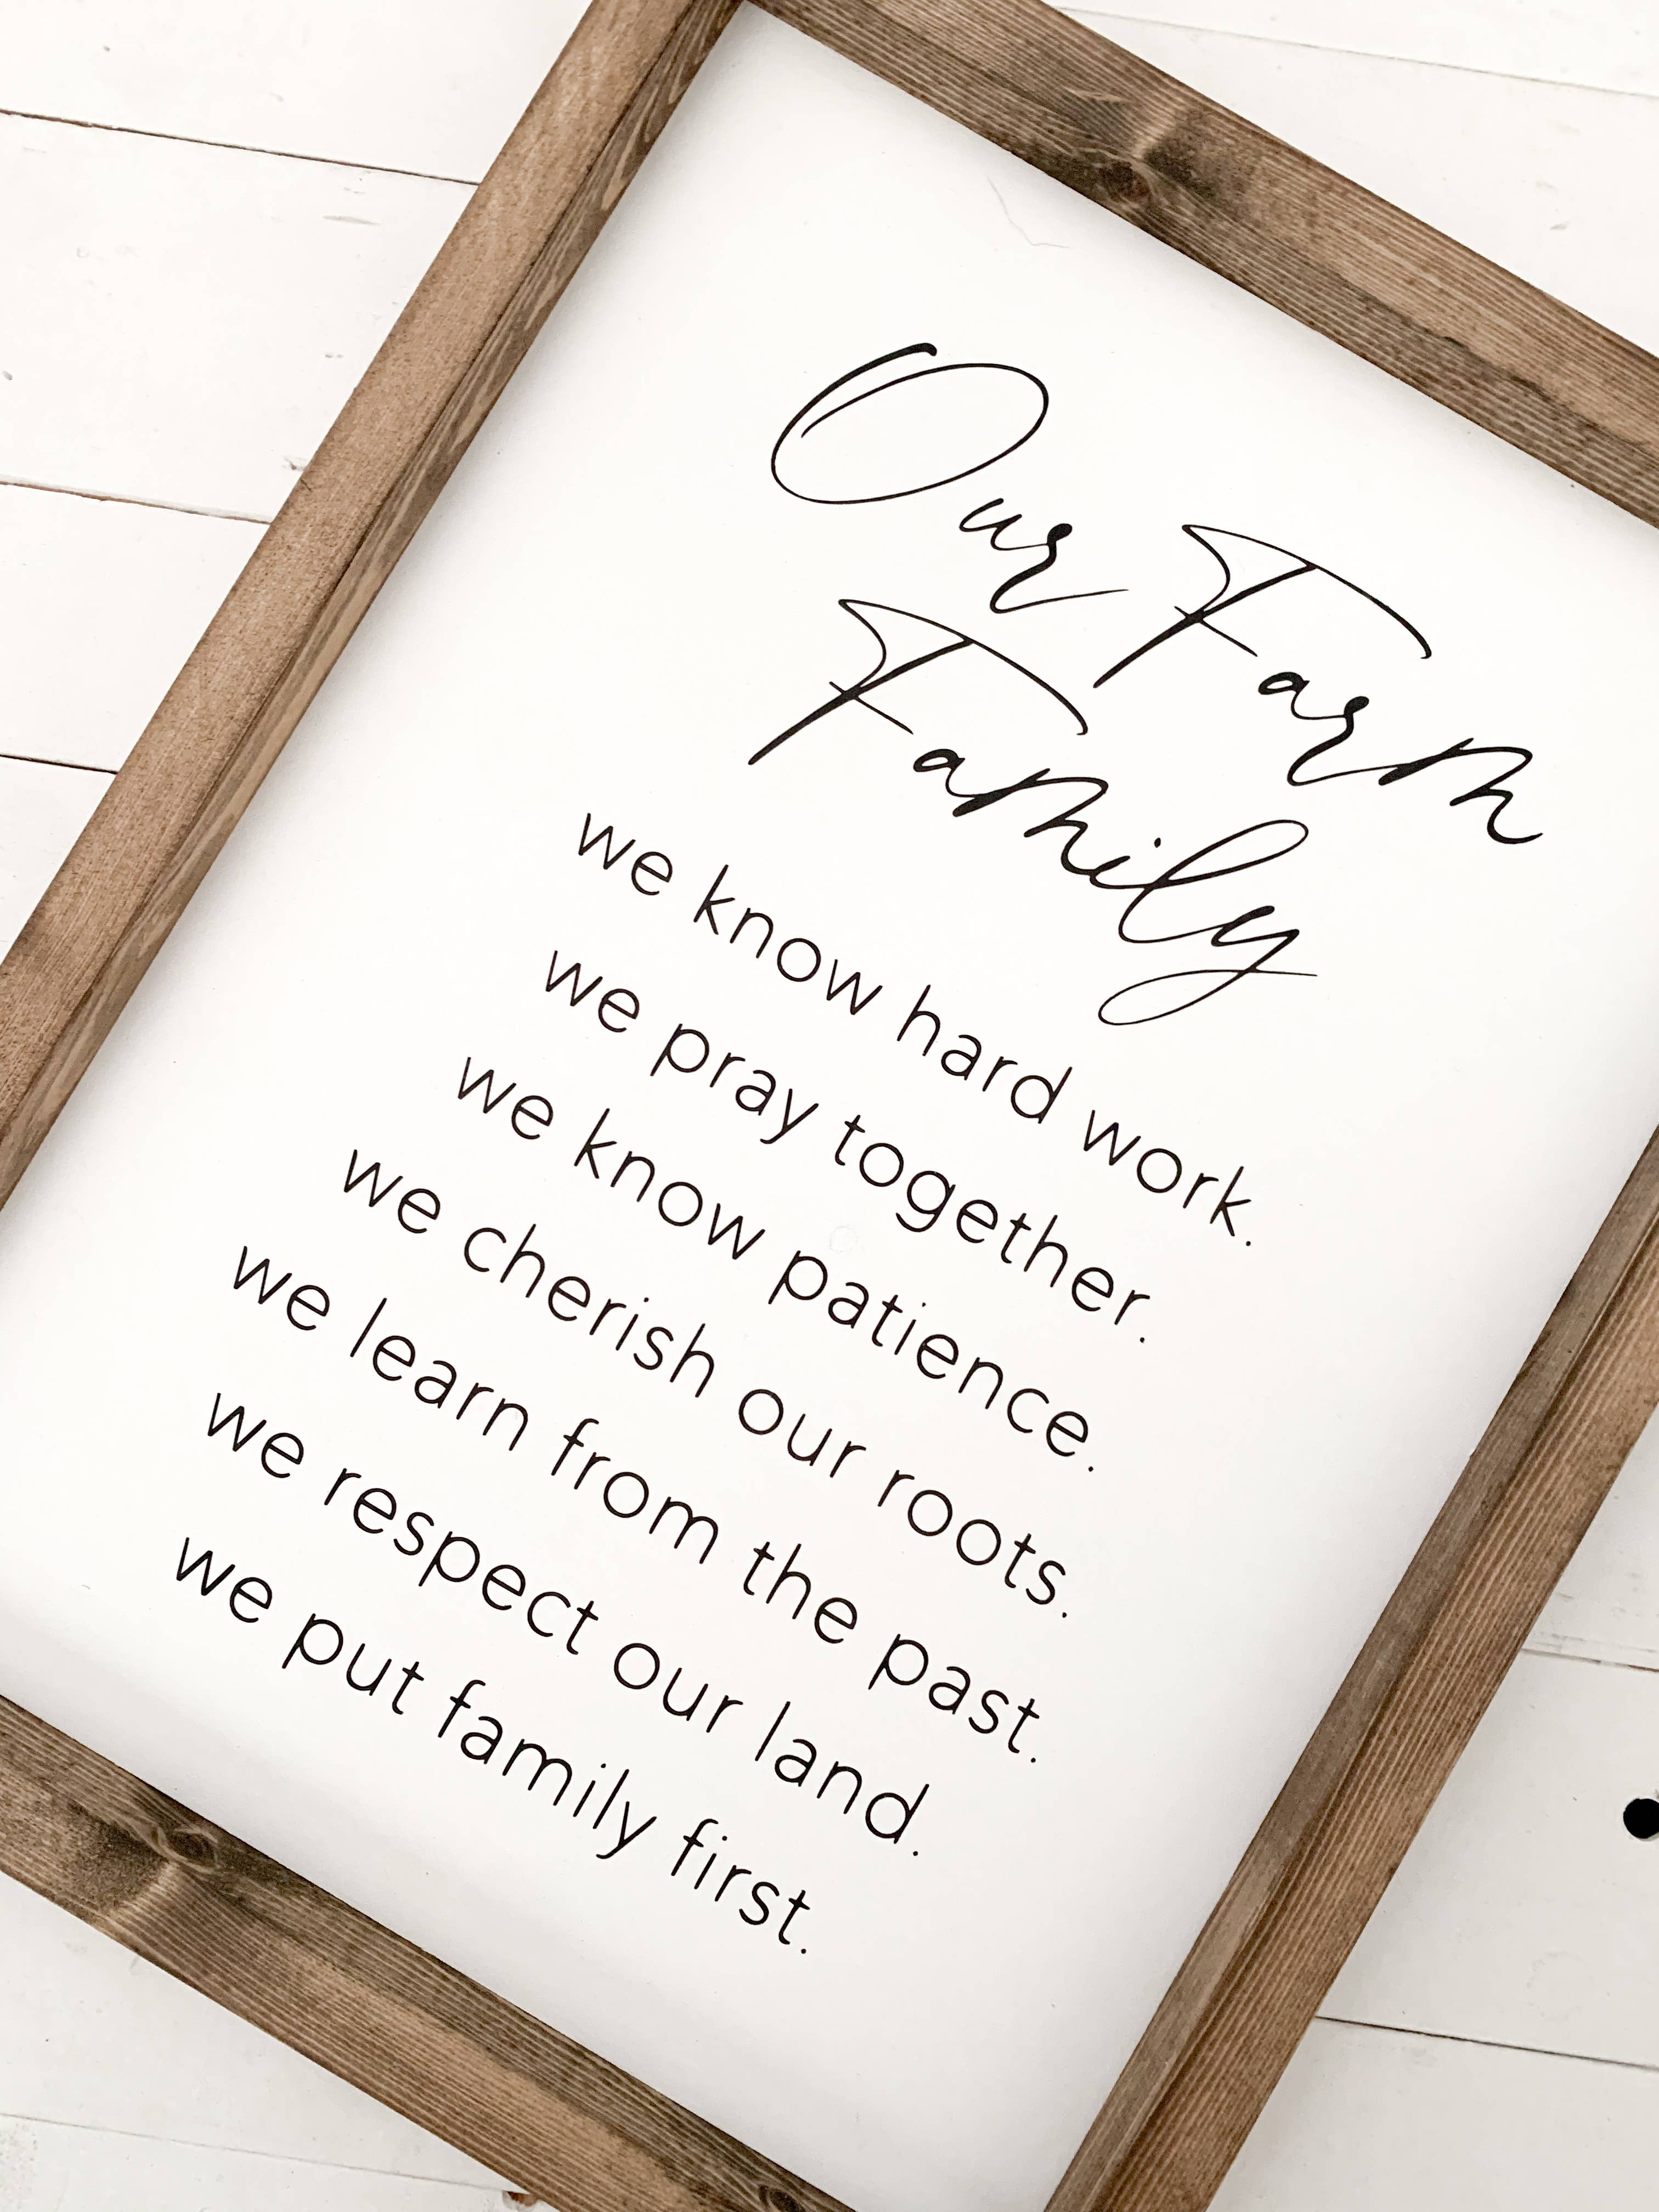 Our Farm
Family
we know hard work.
we pray together.
we know patience.
we cherish our roots.
we learn from the past.
we respect our land.
we put family first.